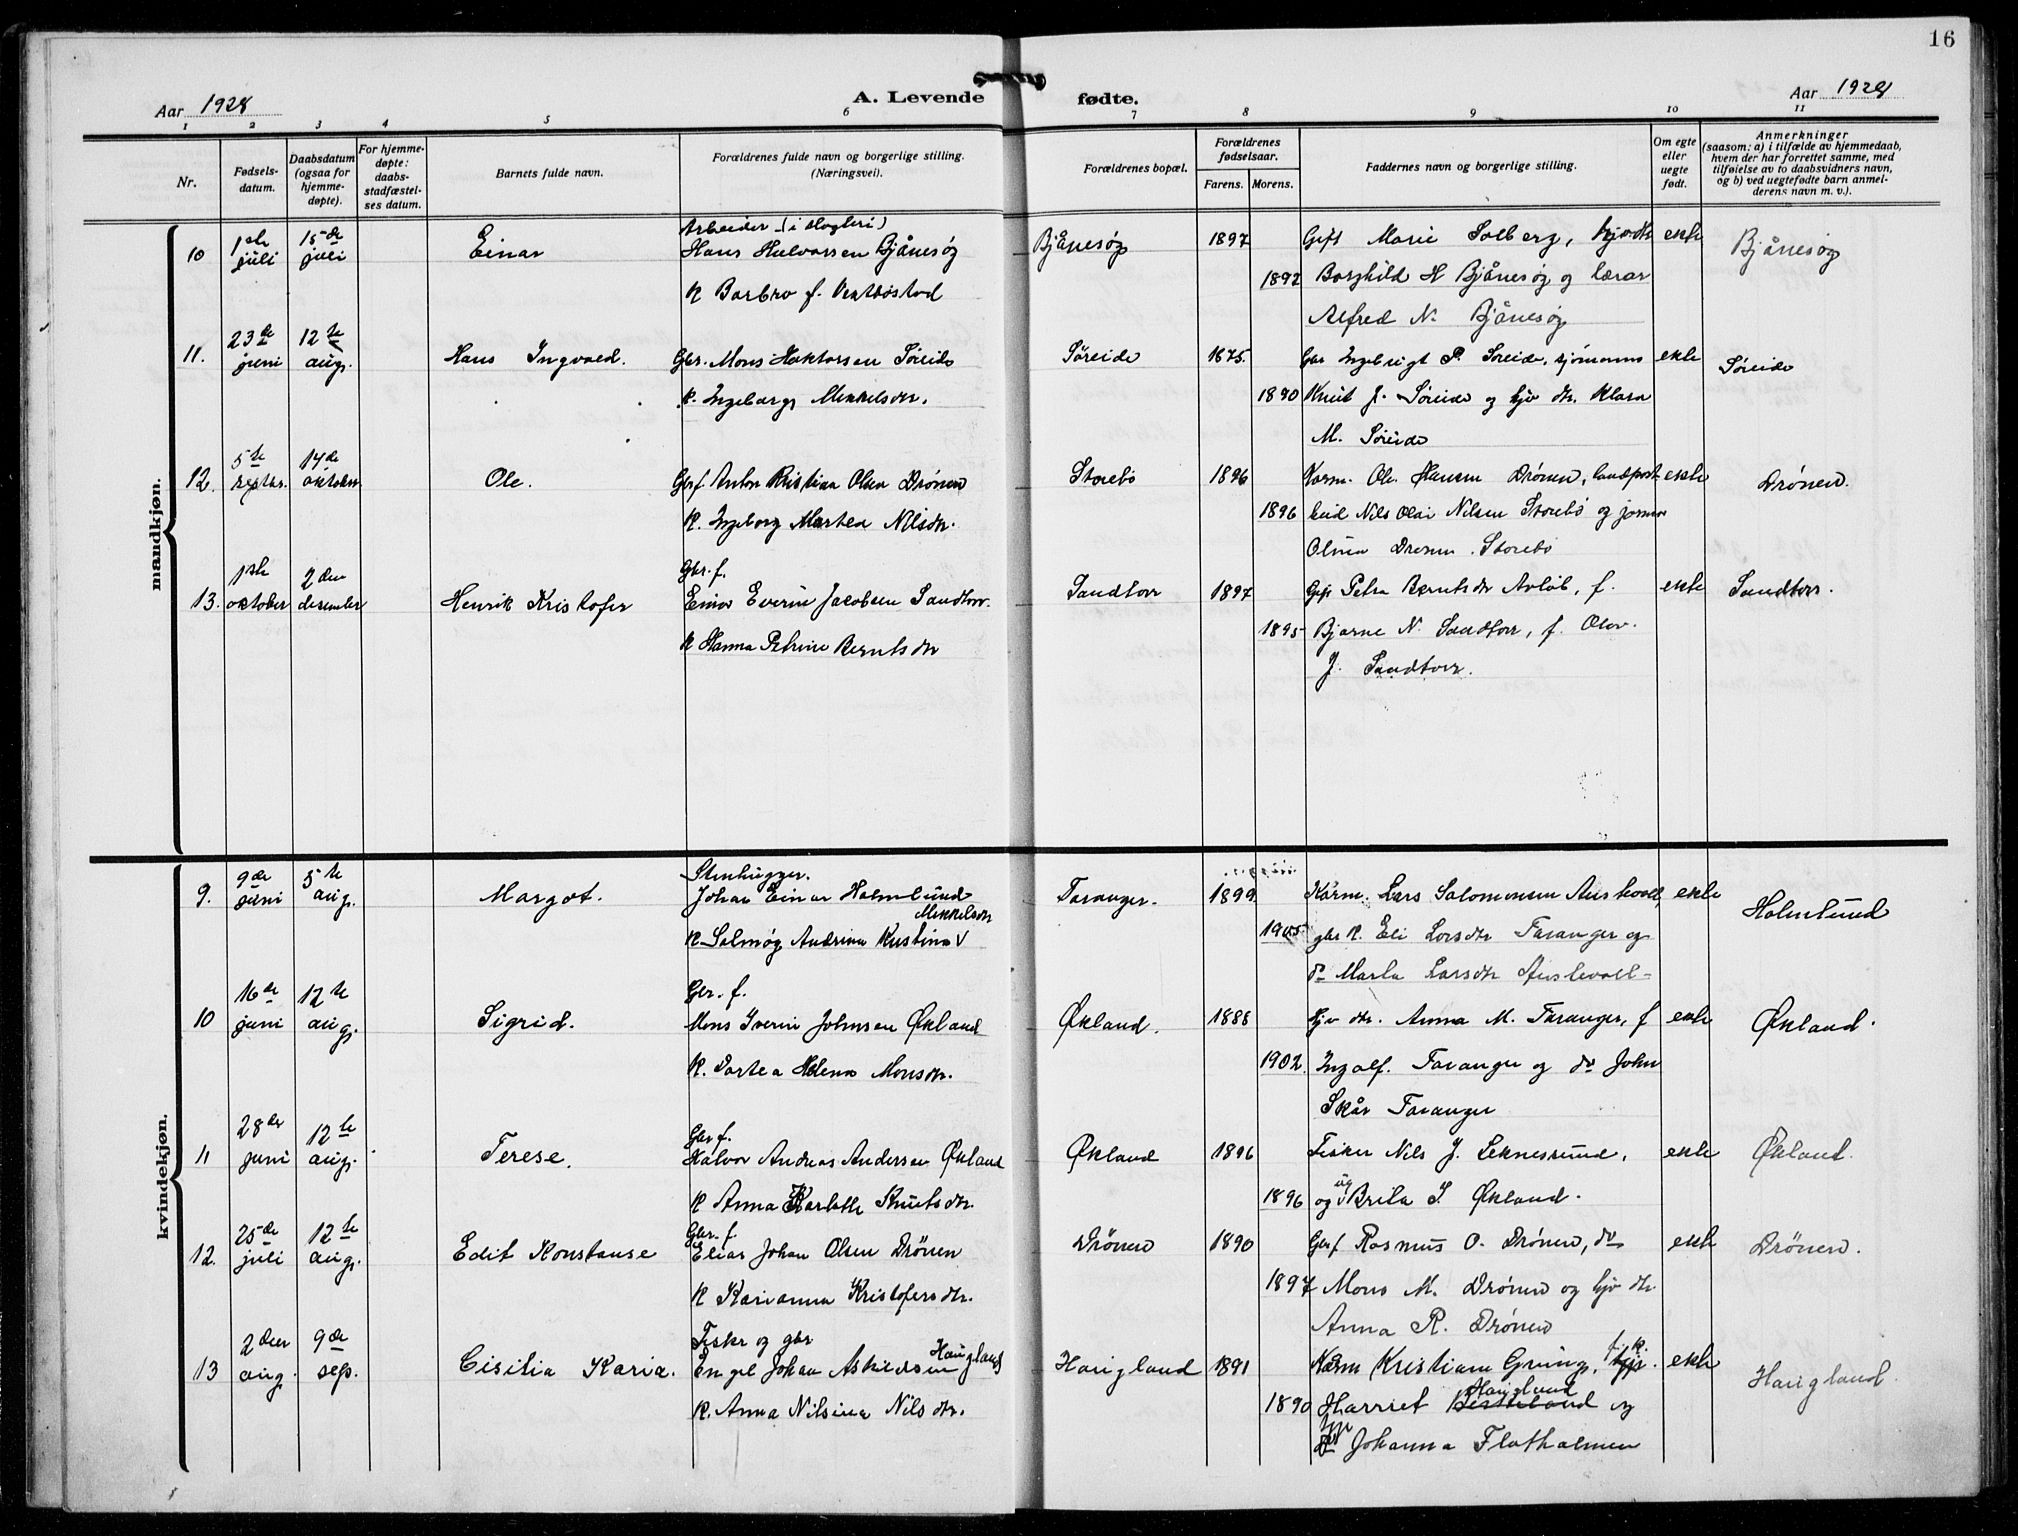 16
Aar 1928
A. Levende fødte.
Aar 1928
1 2 3 4 5 6 7 8 9 10 11
Nr.
Fødsels-
datum.
Daabsdatum
(ogsaa for
hjemme-
døpte).
For hjemme-
døpte:
daabs-
stadfæstel-
ses datum.
Barnets fulde navn.
Forældrenes fulde navn og borgerlige stilling.
(Næringsvei).
Forældrenes bopæl.
Forældrenes
fødselsaar.
Farens. Morens.
Faddernes navn og borgerlige stilling.
Om egte
eller
uegte
født.
Anmerkninger
(saasom: a) i tilfælde av hjemmedaab,
hvem der har forrettet samme, med
tilføielse av to daabsvidners navn,
og b) ved uegtefødte barn anmel-
derens navn m. v.).
mandkjøn.
Arbeider
10 1ste juli 15de juli Einar Hans Halvorsen Bjånesøy Bjånesøy 1897 Gift Marie Solberg, ekte Bjånesøy
K Barbro f. 1892 Borghild H Bjånesøy og lærar
Alfred N. Bjånesøy
11. 23de juni 12te aug. Hans Ingvald. Gbr. Mons Haktorsen Søreide Søreide 1875. Gbr Ingebrigt P. Søreide, ekte Søreide
K. Ingeborg Mikkelsdtr. 1890 Knut J. Søreide og hjv dtr. Klara
M. Søreide
12. 5te septbr. 14de oktober Ole. Gbrf Anton Kristian Olsen Drönen Storebö 1896 Kårm. Ole Hansen Drönen, landpost- ekte Drönen.
K. Ingeborg Martea Nilsdtr. 1896 bud Nils Olai Nilsen Storebö og
Olina Drönen Storebö
Gbr. f.
13. 1ste oktober 2den desember Henrik Kristofer Einar Everin Jacobsen Sandtorv. Sandtorv 1897 Gift Petra Berntsdtr f. ekte Sandtorv.
K Hanna Petrine Berntsdtr 1895 Bjarne N. Sandtorv, f. Olav.
J. Sandtorv.
kvindekjøn.
Stenhugger.
9. 9de juni 5te aug. Margot. Johan Einar Holmlund Taranger. 1899 Kårm. Lars Salomonsen Austevoll, ekte Holmlund
Mikkelsdtr
K Solmøy Andrina Kristina V 1905 gbr K. Eli Larsdtr Taranger og
do Marta Larsdtr Austevoll
Gbr. f.
10 16de juni 12te aug. Sigrid. Mons Iverin Johnsen Økland Økland. 1888 hjv dtr. Anna M. Taranger, f ekte Økland.
K. Dortea Helena Monsdtr. 1902. Ingolf. Taranger og do John
Skår Taranger
Gbr f.
11 28de juni 12te aug. Terese. Halvor Andreas Andersen Økland Økland 1896 Fisker Nils J. Leknessund, ekte Økland.
K Anna Karlotte Knutsdtr. 1896 og ug Brita I. Økland.
Gbr. f.
12. 25de juli 12te aug. Edit Konstanse Elias Johan Olsen Drönen Drönen 1890 Gbrf Rasmus O. Drönen, do ekte Drönen.
K Karianna Kristofersdtr. 1897 Mons M. Drönen og hjv dtr
Anna R. Drönen
Fisker og gbr
13 2den aug. 9de sep. Cisilia Karia. Engel Johan Askildsen Haugland Haugland 1891 Kårm Kristian Gruny, ekte Haugland.
K. Anna Nilsina Nilsdtr. 1890 Harriet Haugland og
Johanna Flatholmen